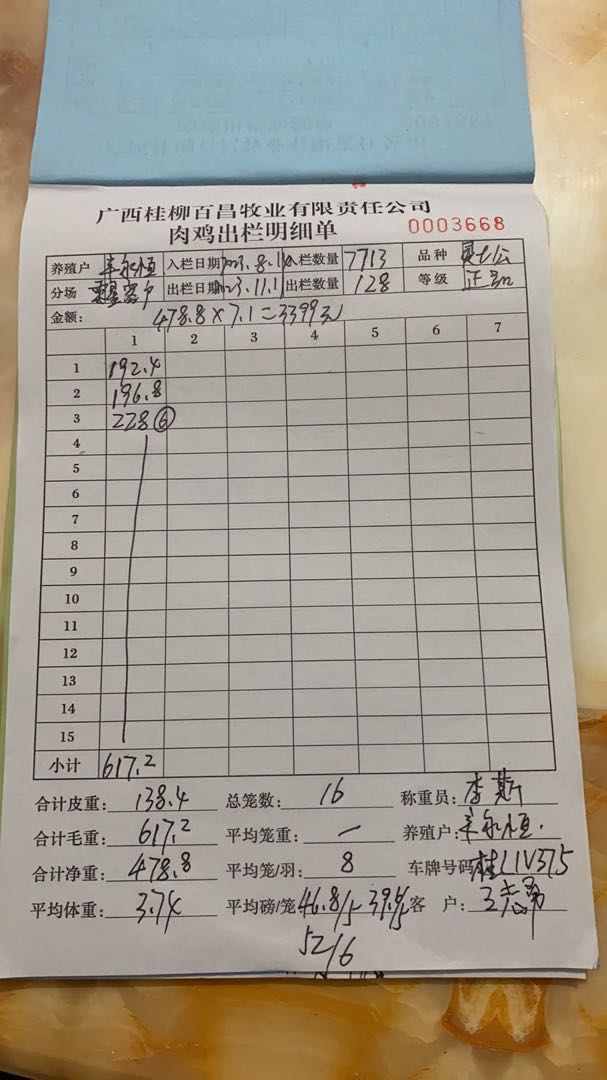 广西桂柳百昌牧业有限责任公司
肉鸡出栏明细单 0003668
养殖户 永恒 入栏日期 2023.8.1 入栏数量 7713 品种
分场 客户 出栏日期 2023.11.1 出栏数量 128 等级 正品
金额: 478.8×7.1=3399元
1 2 3 4 5 6 7
1 192.4
2 196.8
3 228⑥
4
5
6
7
8
9
10
11
12
13
14
15
小计 617.2
合计皮重: 138.4 总笼数: 16 称重员: 李斯
合计毛重: 617.2 平均笼重: — 养殖户: 永恒
合计净重: 478.8 平均笼/羽: 8 车牌号码 桂L1V375
平均体重: 3.74 平均磅/笼 46.8/5 39.4/5 客 户: 王志勇
52/6